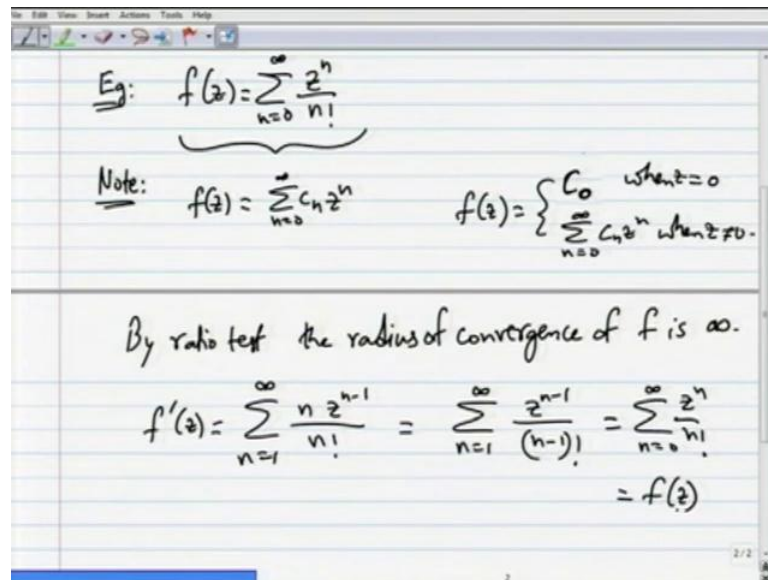 File Edit View Insert Actions Tools Help
Eg: f(z) = ∑_{n=0}^{∞} z^n / n!
Note: f(z) = ∑_{n=0}^{∞} c_n z^n f(z) = { C_0 when z = 0
∑_{n=0}^{∞} c_n z^n when z ≠ 0.
By ratio test the radius of convergence of f is ∞.
f'(z) = ∑_{n=1}^{∞} n z^{n-1} / n! = ∑_{n=1}^{∞} z^{n-1} / (n-1)! = ∑_{n=0}^{∞} z^n / n!
= f(z)
2/2
2